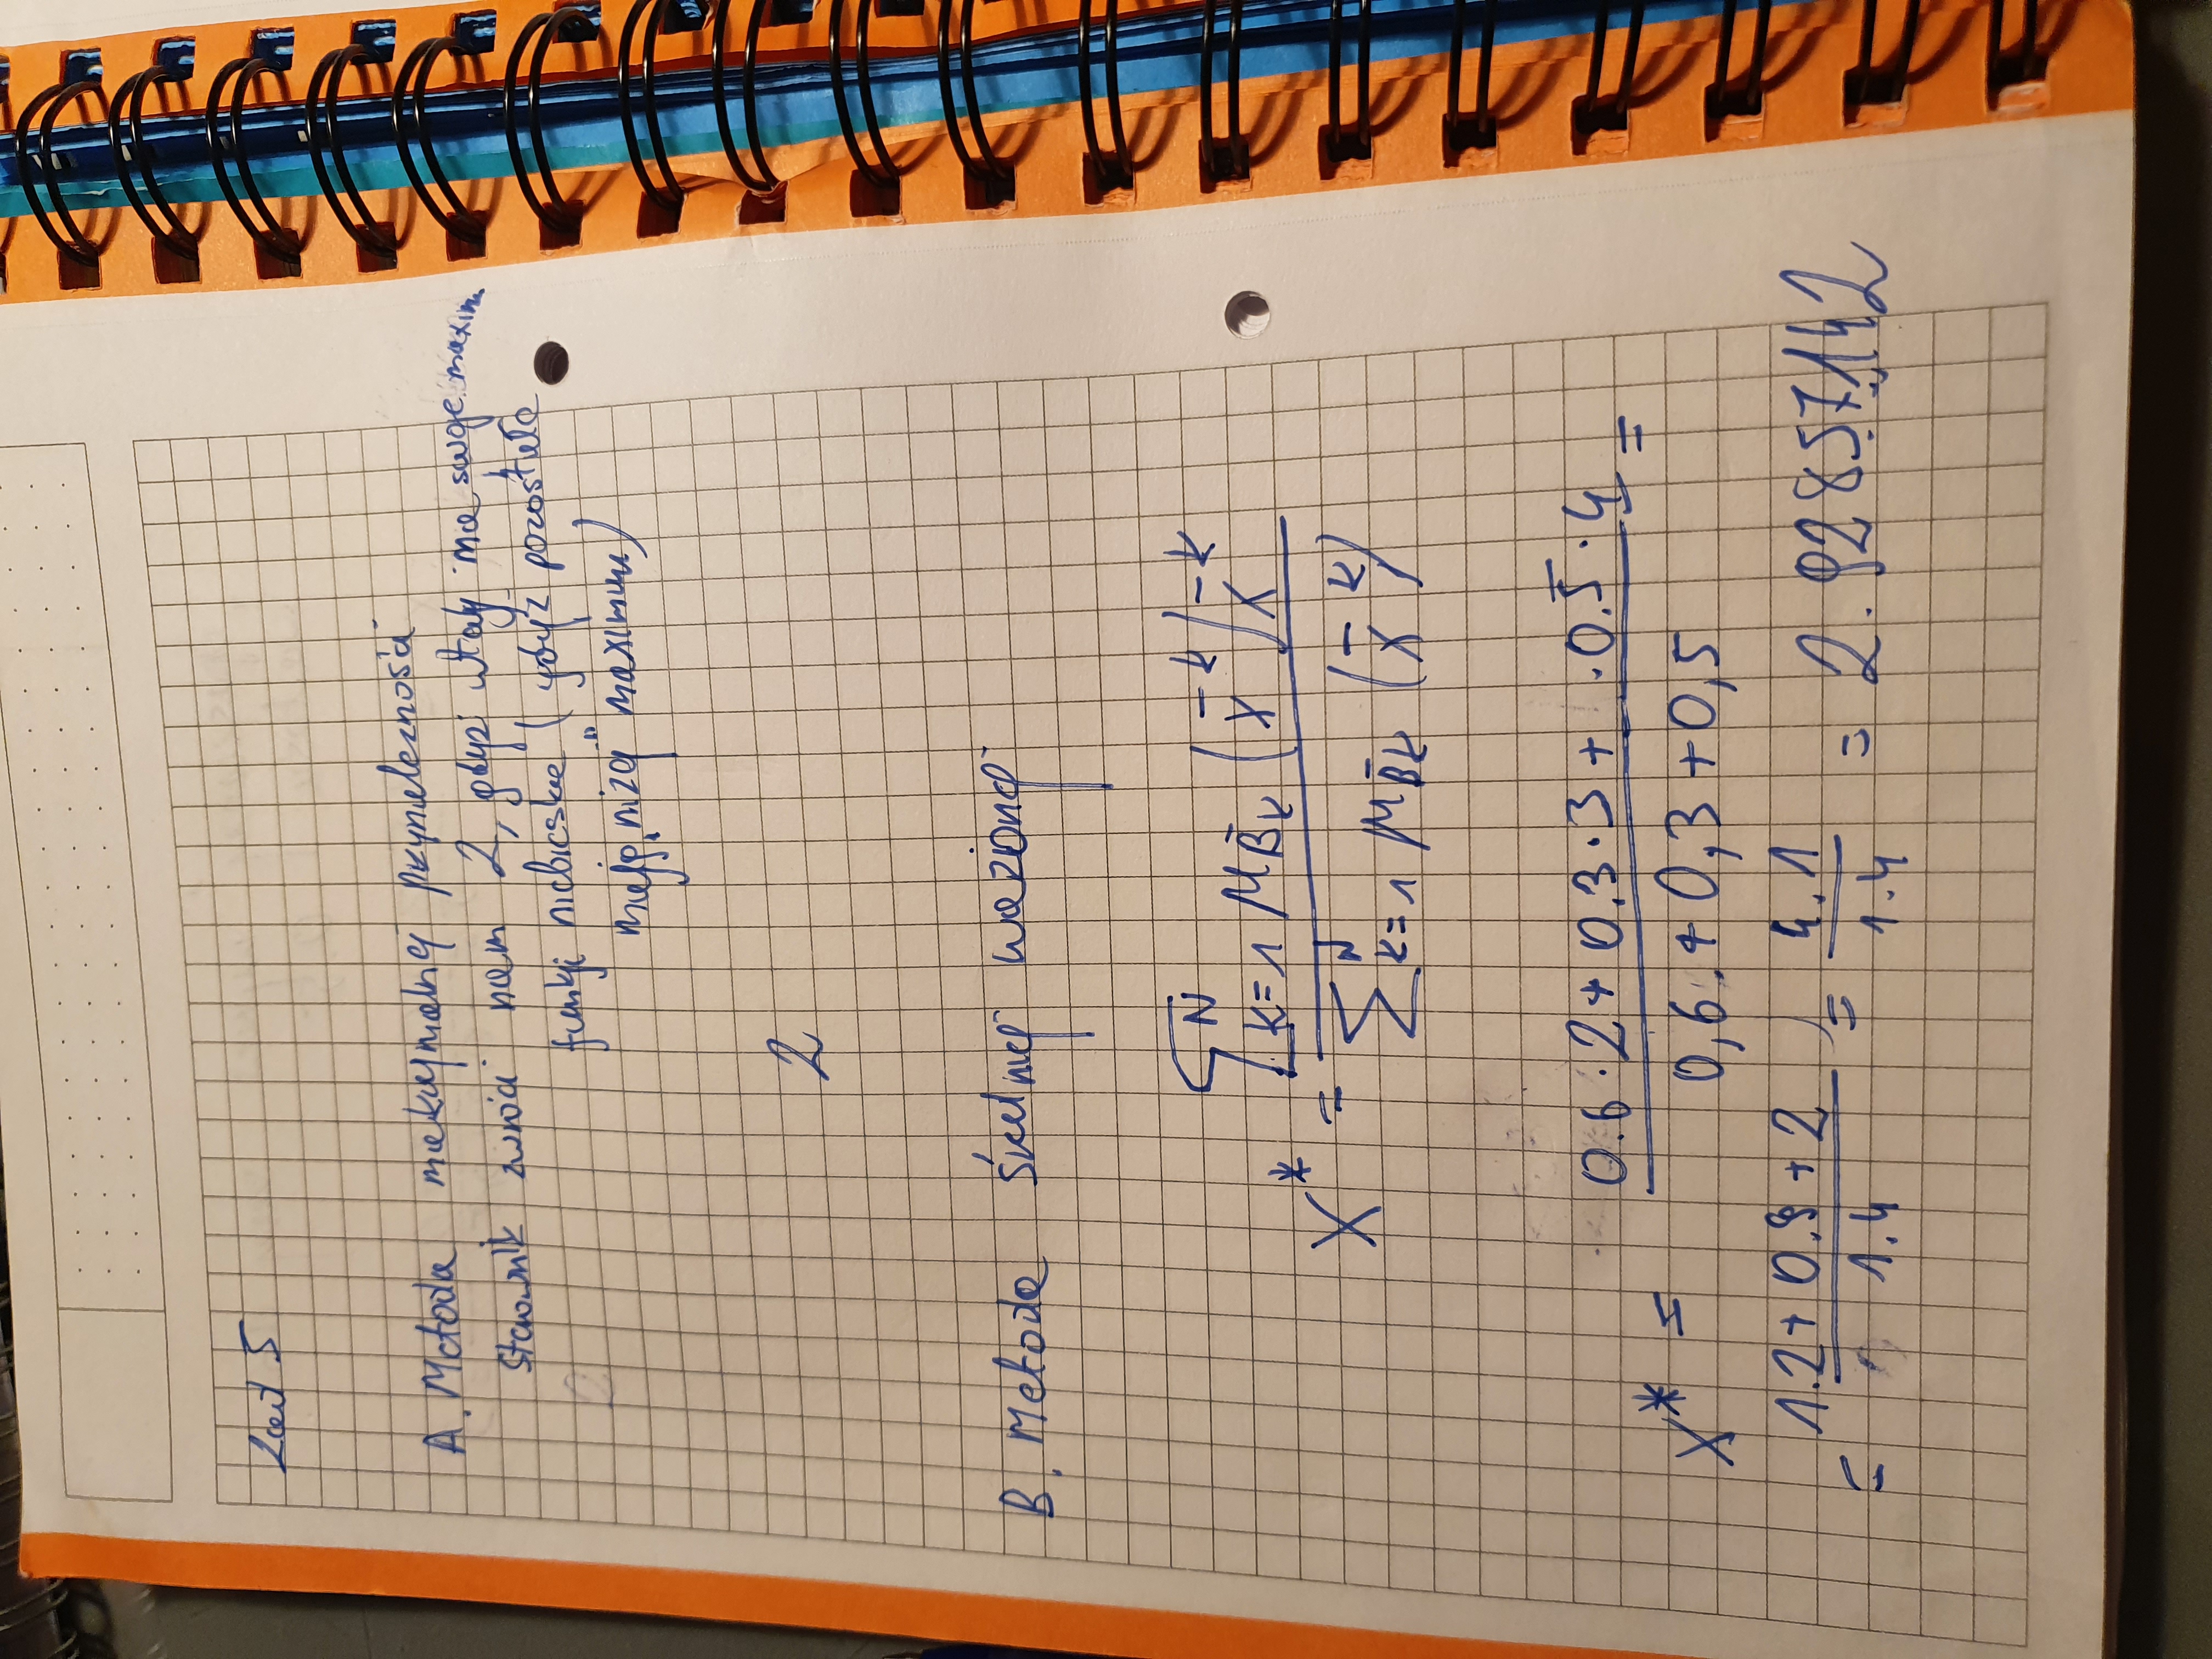 Zad 5
A. Metoda maksymalnej przynależności
Sterownik zwróci nam 2, gdyż wtedy ma swoje maximu
funkcji niebieska (gdyż pozostałe
mają „niżej" maximum)
2
B. Metoda średniej ważonej
X* = ∑^N_{k=1} μ_{B̄k} (x̄^k) x̄^k / ∑^N_{k=1} μ_{B̄k} (x̄^k)
X* = 0.6 · 2 + 0.3 · 3 + · 0.5 · 4 / 0,6 + 0,3 + 0,5 =
= 1.2 + 0.9 + 2 / 1.4 = 4.1 / 1.4 = 2.92857142